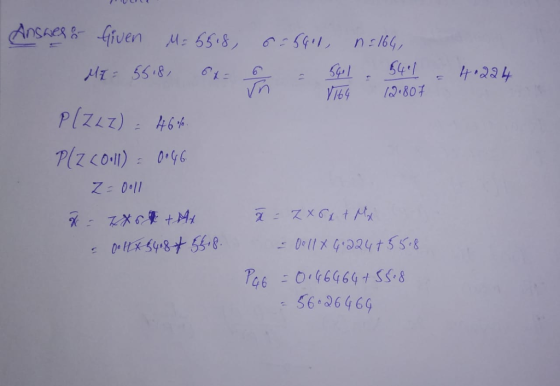 Answer:- Given μ=55.8, σ=54.1, n=164,
μx̄ = 55.8, σx = σ/√n = 54.1/√164 = 54.1/12.807 = 4.224
P(Z<z) = 46%
P(Z<0.11) = 0.46
Z = 0.11
x̄ = Z×σx̄ + μx
= 0.11×54.8+55.8
x̄ = Z×σx + μx
= 0.11×4.224+55.8
P46 = 0.46464+55.8
= 56.26464